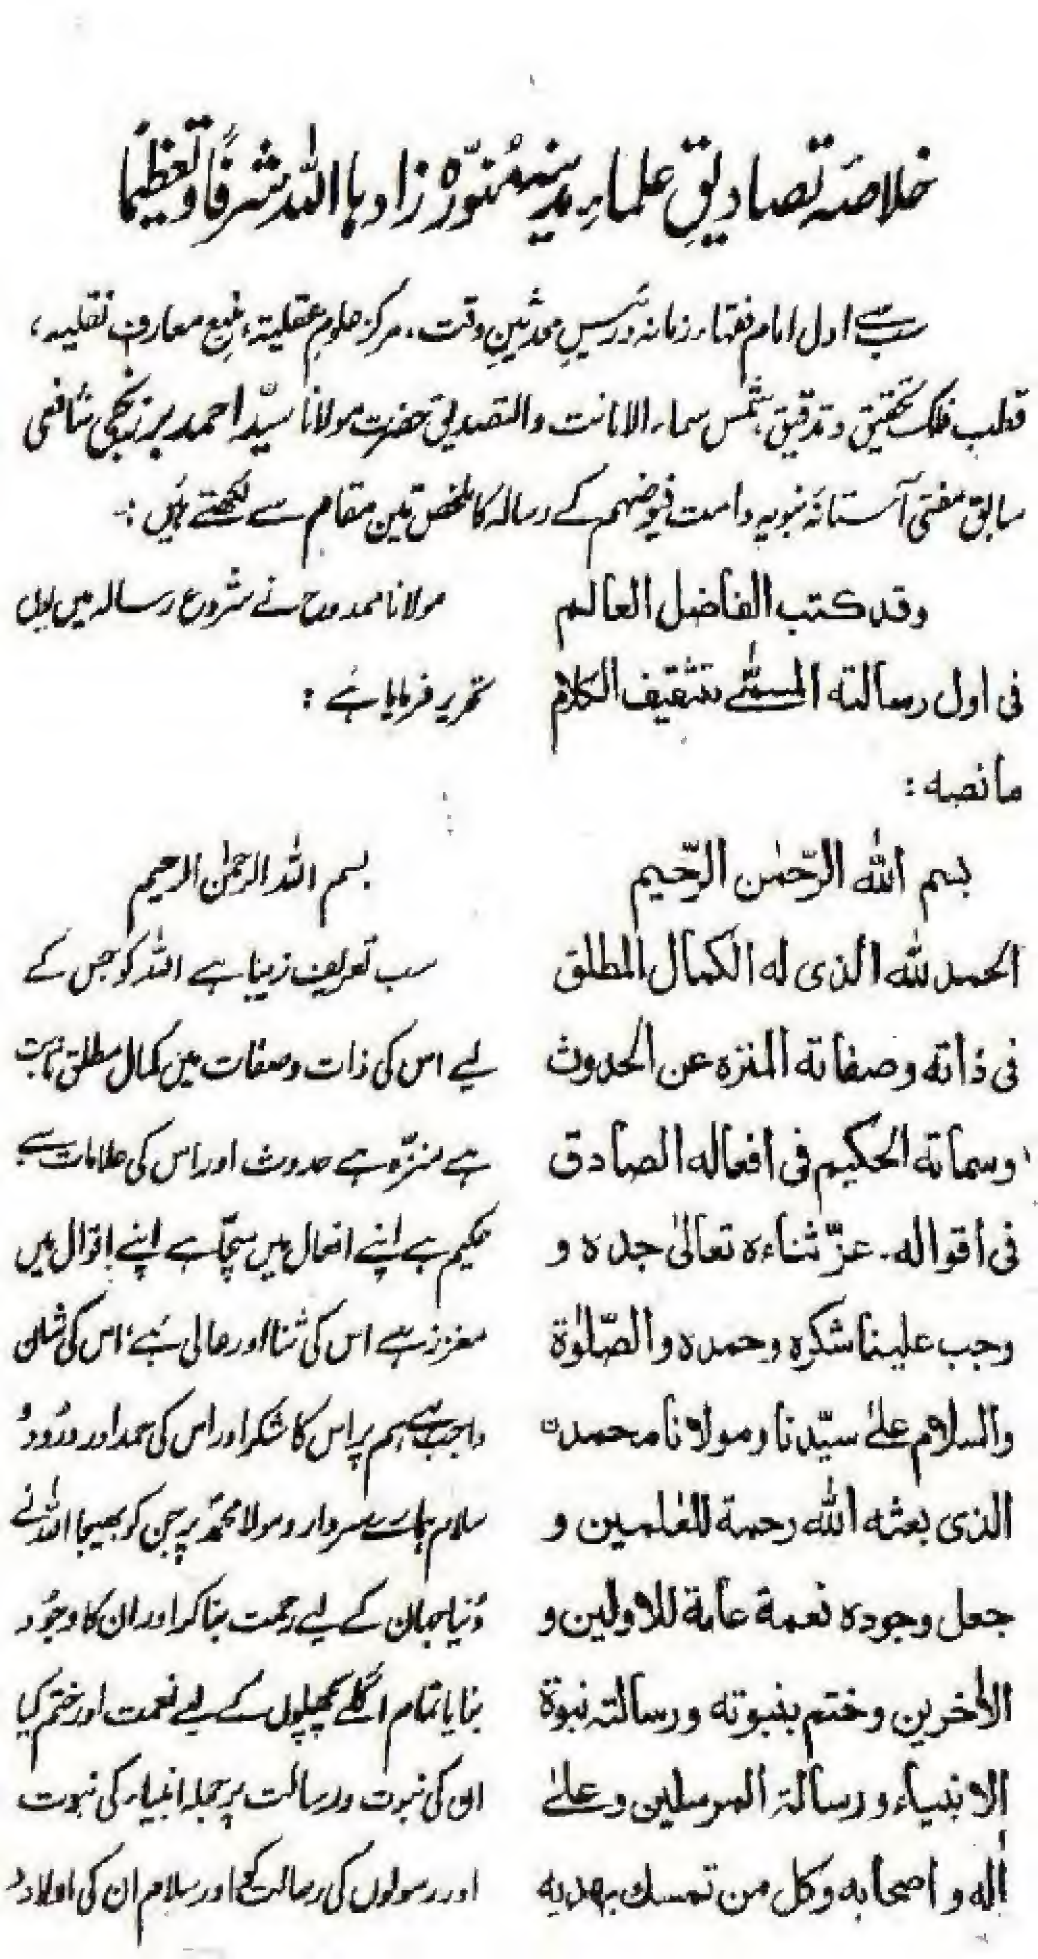 خلاصۂ تصادیقِ علماءِ مدینہ مُنوّرہ زادہا اللہ شرفًا و تعظیمًا
سب سے اول امام فقہاء زمانہ و رئیسِ محدثینِ وقت، مرکز علومِ عقلیۃ، منبعِ معارف نقلیہ،
قطب فلک تحقیق و تدقیق، شمس سماء الامانت والتصدیق حضرت مولانا سیّد احمد برزنجی شافعی
سابق مفتی آستانہ نبویہ دامت فیوضہم کے رسالہ کا ملخص تین مقام سے لکھتے ہیں :-
وقد كتب الفاضل العالم
فی اول رسالته المسمّٰے بتثقیف الکلام
ما نصه :
بسم الله الرّحمٰن الرّحیم
الحمد لله الذی له الکمال المطلق
فی ذاته وصفاته المنزه عن الحدوث
وسماته الحکیم فی افعاله الصادق
فی اقواله۔ عزّ ثناءہ تعالیٰ جدہ و
وجب علینا شکره وحمده والصّلوٰة
والسلام علیٰ سیّدنا و مولانا محمدن
الذی بعثه الله رحمة للعٰلمین و
جعل وجوده نعمة عامة للاولین و
الاٰخرین وختم بنبوته ورسالته نبوة
الانبیاء ورسالة المرسلین وعلیٰ
اٰله و اصحابه وکل من تمسک بهدیه
مولانا ممدوح نے شروع رسالہ میں یوں
تحریر فرمایا ہے :
بسم اللہ الرحمٰن الرحیم
سب تعریف زیبا ہے اللہ کو جس کے
لیے اس کی ذات و صفات میں کمال مطلق ثابت
ہے منزّہ ہے حدوث اور اس کی علامات سے
حکیم ہے اپنے افعال میں سچّا ہے اپنے اقوال میں
معزز ہے اس کی ثنا اور عالی ہے، اس کی شان
واجب ہے ہم پر اس کا شکر اور اس کی حمد اور درُود
سلام ہمارے سردار و مولا محمّد پر جن کو بھیجا اللہ نے
دُنیا جہان کے لیے رحمت بنا کر اور ان کا وجُود
بنایا تمام اگلے پچھلوں کے لیے نعمت اور ختم کیا
ان کی نبوت و رسالت پر جملہ انبیاء کی نبوت
اور رسولوں کی رسالت کو، اور سلام ان کی اولاد و